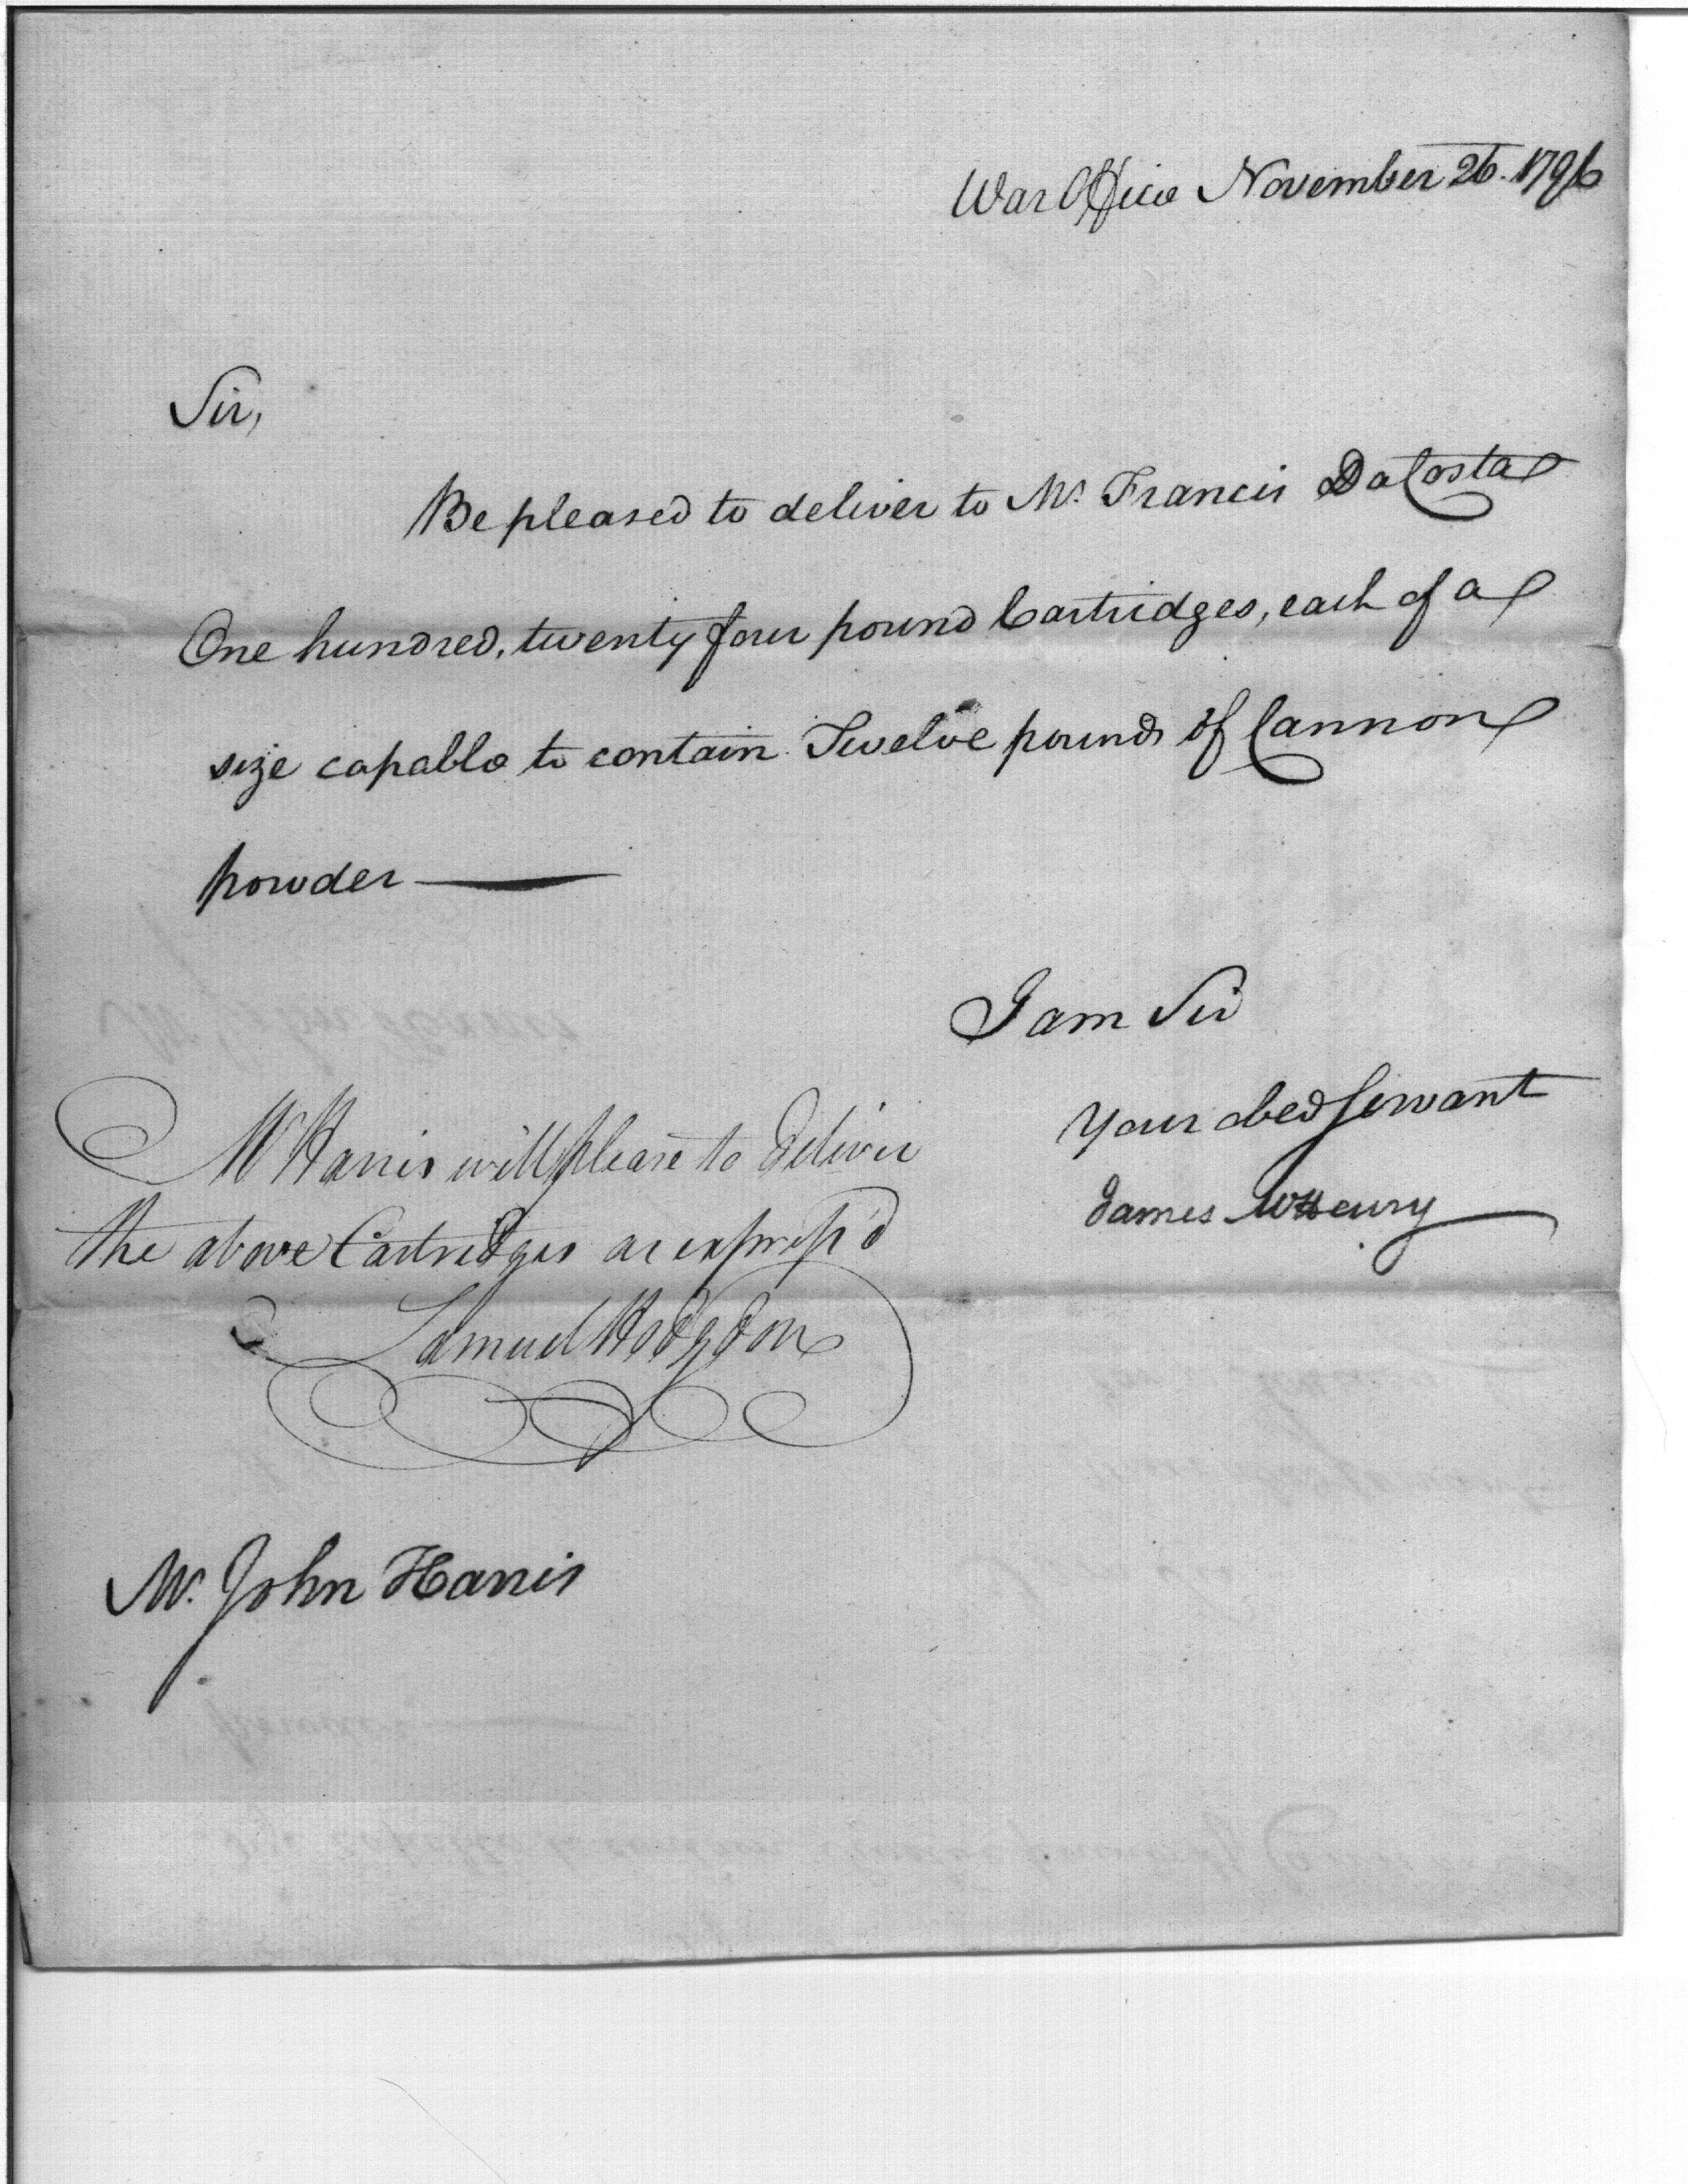 War Office November 26. 1796
Sir,
Be pleased to deliver to Mr. Francis DaCosta
One hundred, twenty four pound Cartridges, each of a
size capable to contain Twelve pounds of Cannon
powder —
I am Sir
Your obed Servant
James McHenry
Mr Harris will please to deliver
the above Cartridges as express'd
Samuel Hodgdon
Mr. John Harris